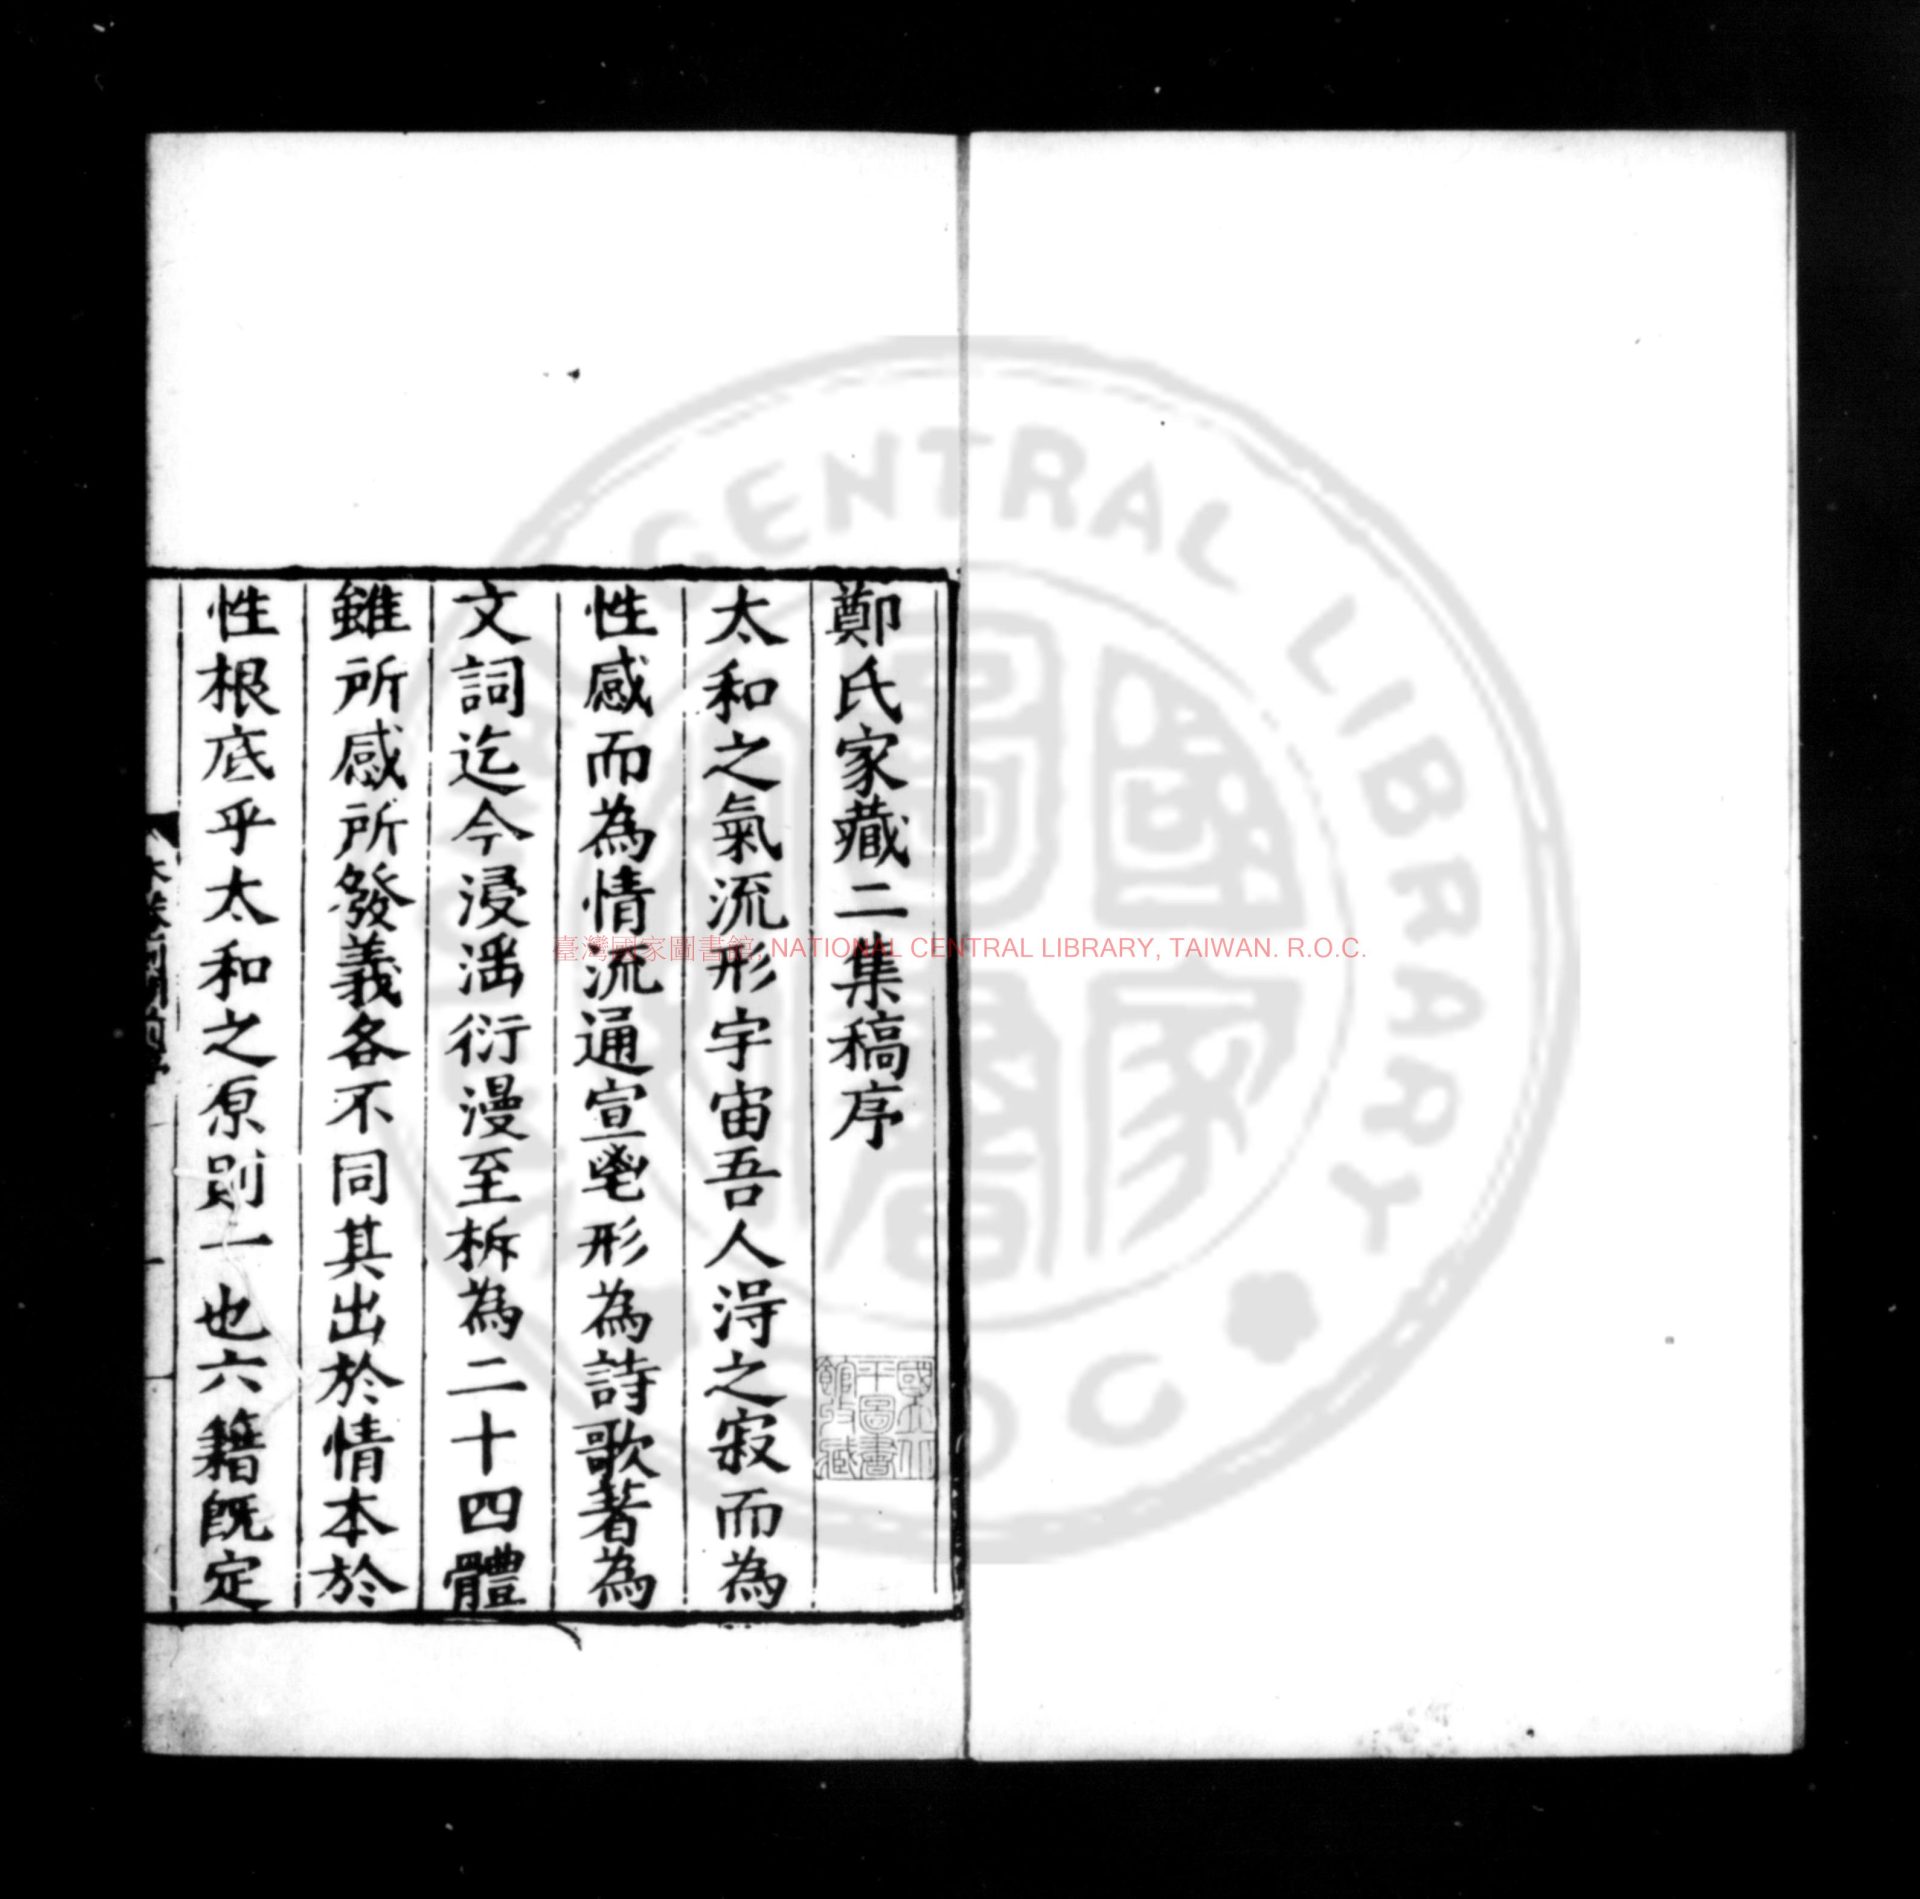 鄭氏家藏二集稿序
太和之氣流形宇宙吾人淂之寂而為
性感而為情流通宣鬯形為詩歌著為
文詞迄今浸滛衍漫至柝為二十四體
雖所感所發義各不同其出於情本於
性根底乎太和之原則一也六籍旣定
國立北
平圖書
館收藏
臺灣國家圖書館, NATIONAL CENTRAL LIBRARY, TAIWAN. R.O.C.
CENTRAL LIBRARY